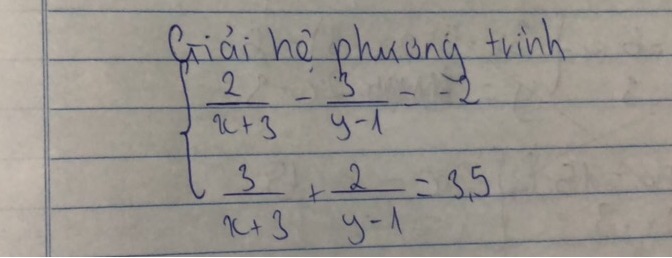 Giải hệ phương trình
{ 2/(x+3) - 3/(y-1) = -2
3/(x+3) + 2/(y-1) = 3,5